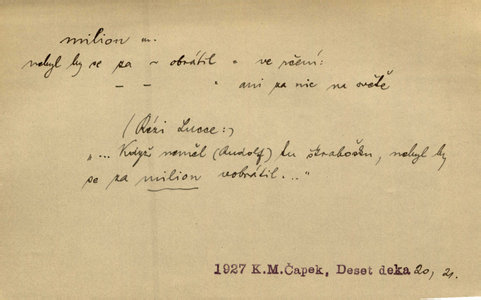 milion m.
nebyl by se za ~ obrátil " ve rčení:
— — " ani za nic na světě
(Rézi Lucce:)
„... Když neměl (Rudolf) tu škrabošku, nebyl by
se za milion vobrátil..."
1927 K.M.Čapek, Deset deka 20, 21.